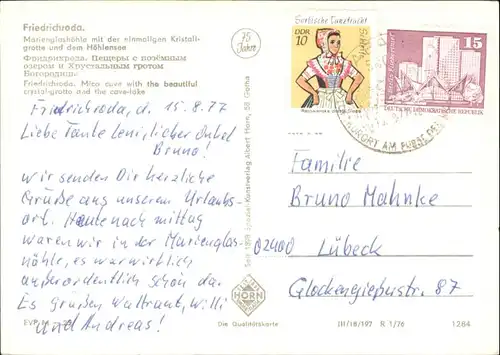 Friedrichroda.
Marienglashöhle mit der einmaligen Kristall-
grotte und dem Höhlensee
Фридрихрода. Пещеры с подземным
озером и Хрустальным гротом
Богородицы
Friedrichroda. Mica cave with the beautiful
crystal-grotto and the cave-lake
75
Jahre
Sorbische Tanztracht
DDR
10
15
DEUTSCHE DEMOKRATISCHE REPUBLIK
KURORT AM FUSSE DES
Friedrichroda, d. 15.8.77
Liebe Tante Leni, lieber Onkel
Bruno!
Wir senden Dir herzliche
Grüße aus unserem Urlaubs-
ort. Heute nach mittag
waren wir in der Marienglas-
höhle, es war wirklich
außerordentlich schön da.
Es grüßen Waltraut, Willi
und Andreas!
Seit 1898 Kunstverlag Albert Horn, 58 Gotha
Familie
Bruno Mahnke
02400 Lübeck
Glockengießerstr. 87
HORN
EVP
Die Qualitätskarte
III/18/197 R 1/76
1284